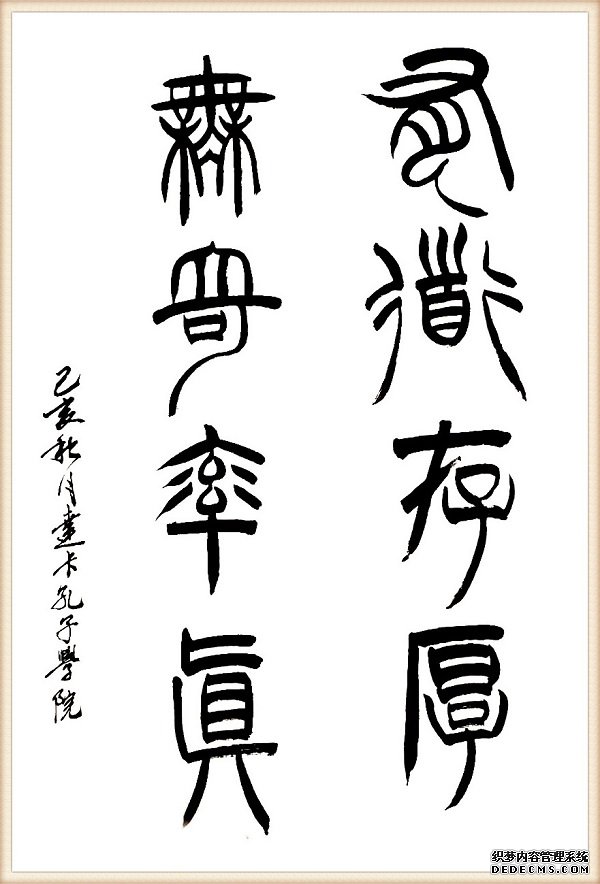 有道存厚
無奇率眞
己亥秋月達卡孔子學院
织梦内容管理系统
DEDECMS.COM